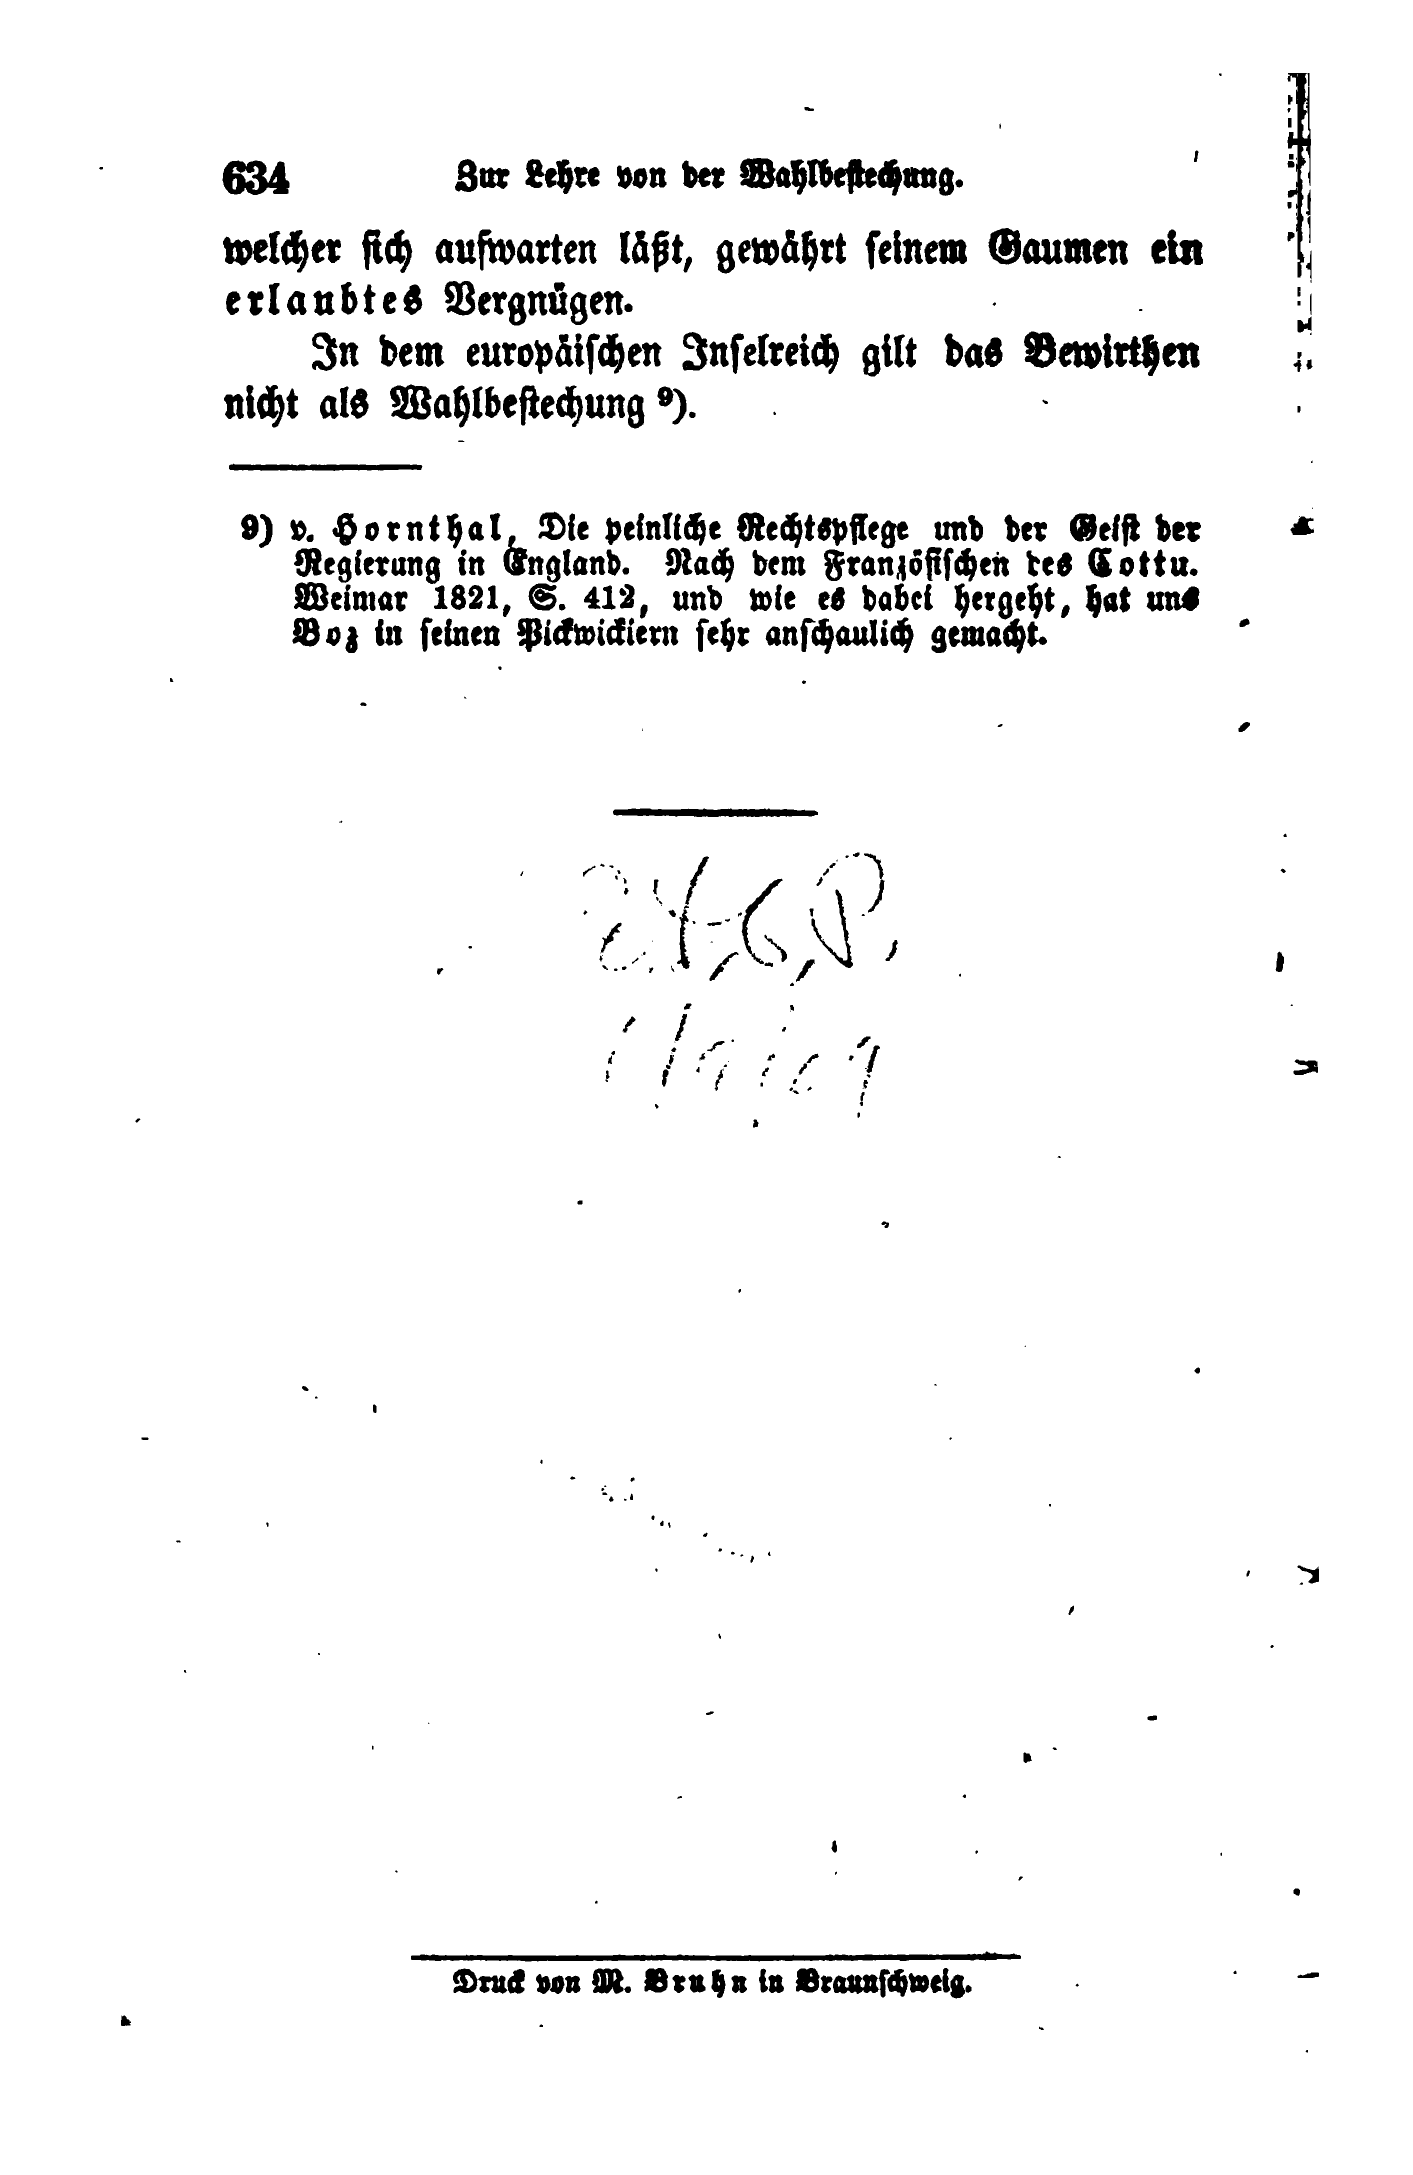 634 Zur Lehre von der Wahlbestechung.
welcher sich aufwarten läßt, gewährt seinem Gaumen ein
erlaubtes Vergnügen.
In dem europäischen Inselreich gilt das Bewirthen
nicht als Wahlbestechung ⁹).
9) v. Hornthal, Die peinliche Rechtspflege und der Geist der
Regierung in England. Nach dem Französischen des Cottu.
Weimar 1821, S. 412, und wie es dabei hergeht, hat uns
Boz in seinen Pickwickiern sehr anschaulich gemacht.
Druck von M. Bruhn in Braunschweig.